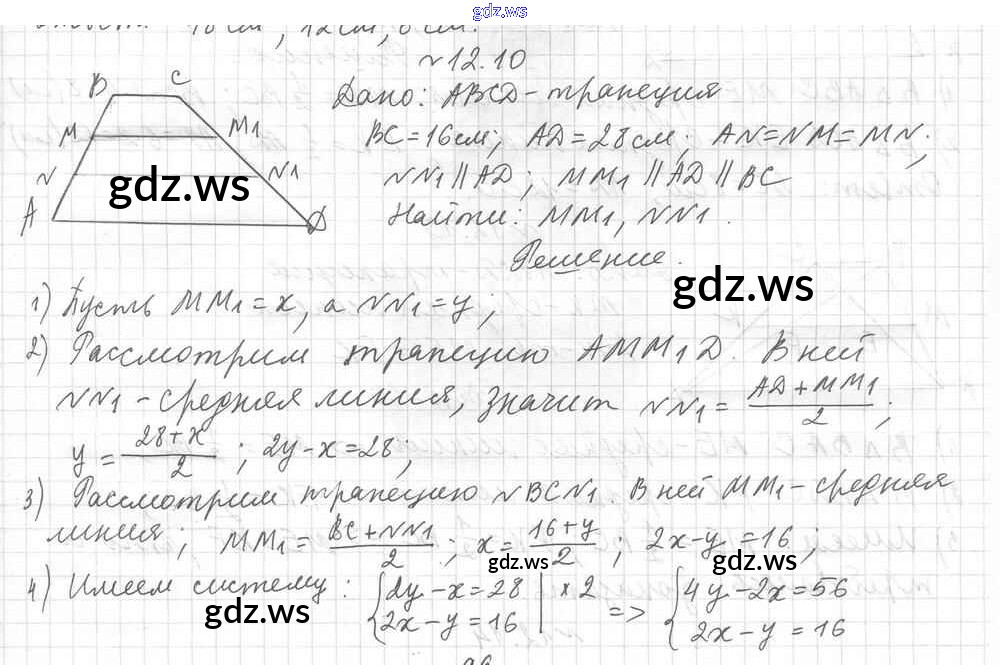 gdz.ws
18 см, 12 см, 6 см.
№12.10
B C
Дано: ABCD - трапеция
M M1
BC=16см; AD=28см; AN=NM=MN;
N N1
gdz.ws
NN1 || AD; MM1 || AD || BC
A D
Найти: MM1, NN1.
Решение.
gdz.ws
1) Пусть MM1 = x, а NN1 = y;
2) Рассмотрим трапецию AMM1D. В ней
NN1 - средняя линия, значит NN1 = (AD+MM1)/2;
y = (28+x)/2; 2y-x=28;
3) Рассмотрим трапецию NBCN1. В ней MM1 - средняя
линия; MM1 = (BC+NN1)/2; x = (16+y)/2; 2x-y=16;
gdz.ws gdz.ws
4) Имеем систему: {2y-x=28 | ×2 => {4y-2x=56
2x-y=16 2x-y=16
gdz.ws